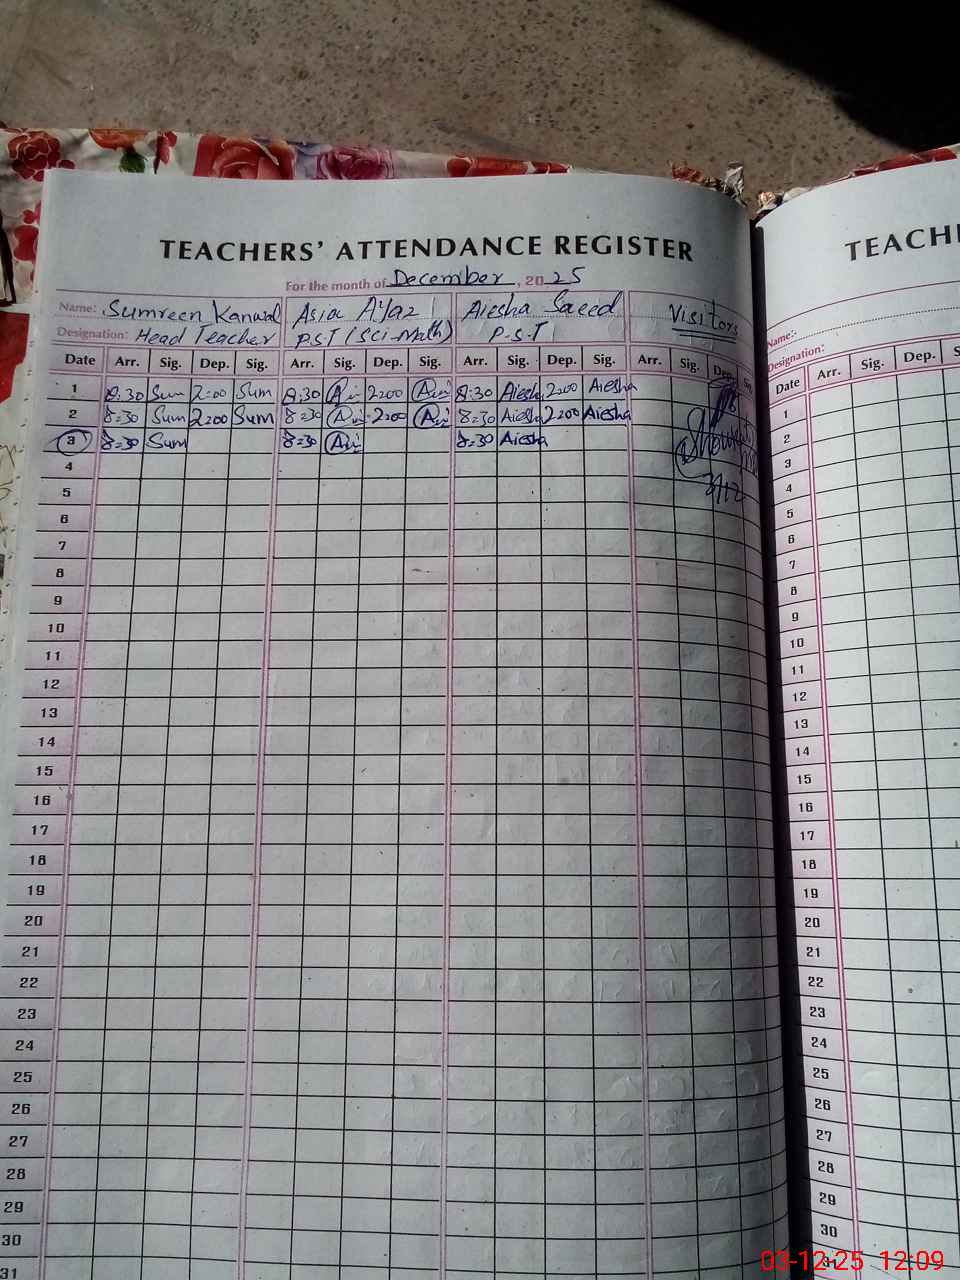 TEACHERS' ATTENDANCE REGISTER
For the month of December, 2025
Name: Sumreen Kanwal Asia Ayaz Aiesha Saeed Visitors
Designation: Head Teacher P.S.T (Sci-Math) P.S.T
Date Arr. Sig. Dep. Sig. Arr. Sig. Dep. Sig. Arr. Sig. Dep. Sig. Arr. Sig. Dep. Sig.
1 8:30 Sum 2:00 Sum 8:30 2:00 8:30 Aiesha 2:00 Aiesha
2 8:30 Sum 2:00 Sum 8:30 2:00 8:30 Aiesha 2:00 Aiesha
3 8:30 Sum 8:30 8:30 Aiesha
3/12
4
5
6
7
8
9
10
11
12
13
14
15
16
17
18
19
20
21
22
23
24
25
26
27
28
29
30
31
TEACH
Name:
Designation:
Date Arr. Sig. Dep. S
1
2
3
4
5
6
7
8
9
10
11
12
13
14
15
16
17
18
19
20
21
22
23
24
25
26
27
28
29
30
31
03-12-25 12:09